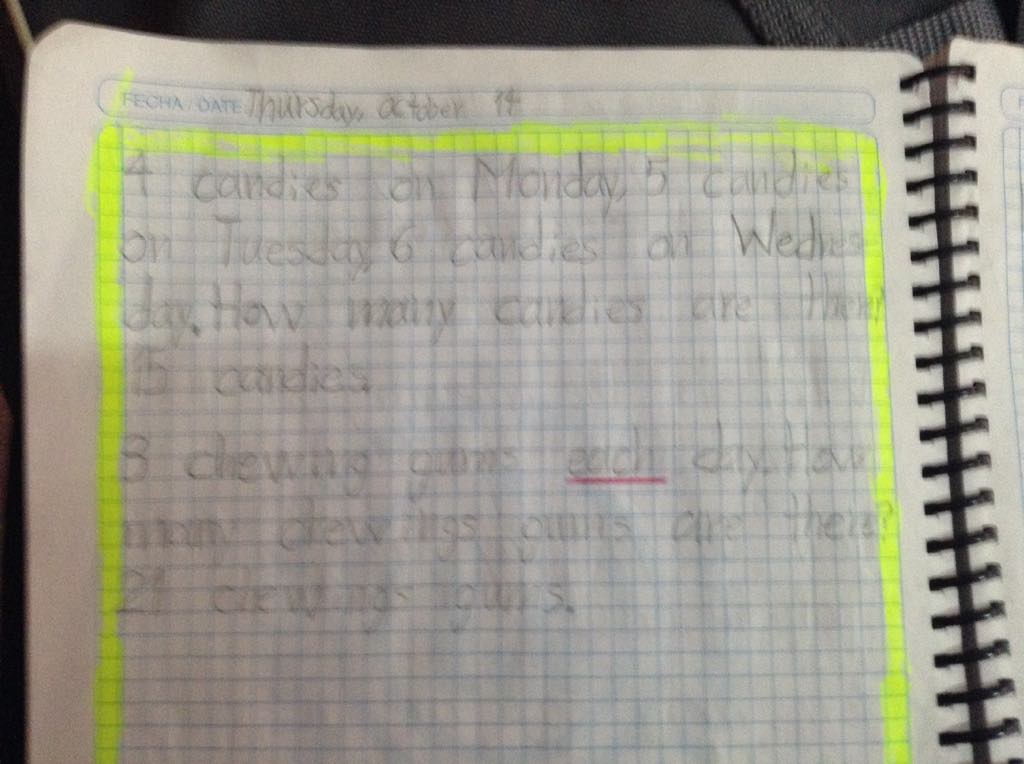 FECHA / DATE Thursday, october 14
4 candies on Monday, 5 candies
on Tuesday, 6 candies on Wednes
day. How many candies are there?
15 candies.
3 chewing gums each day. How
many chewings gums are there?
21 chewings gums.